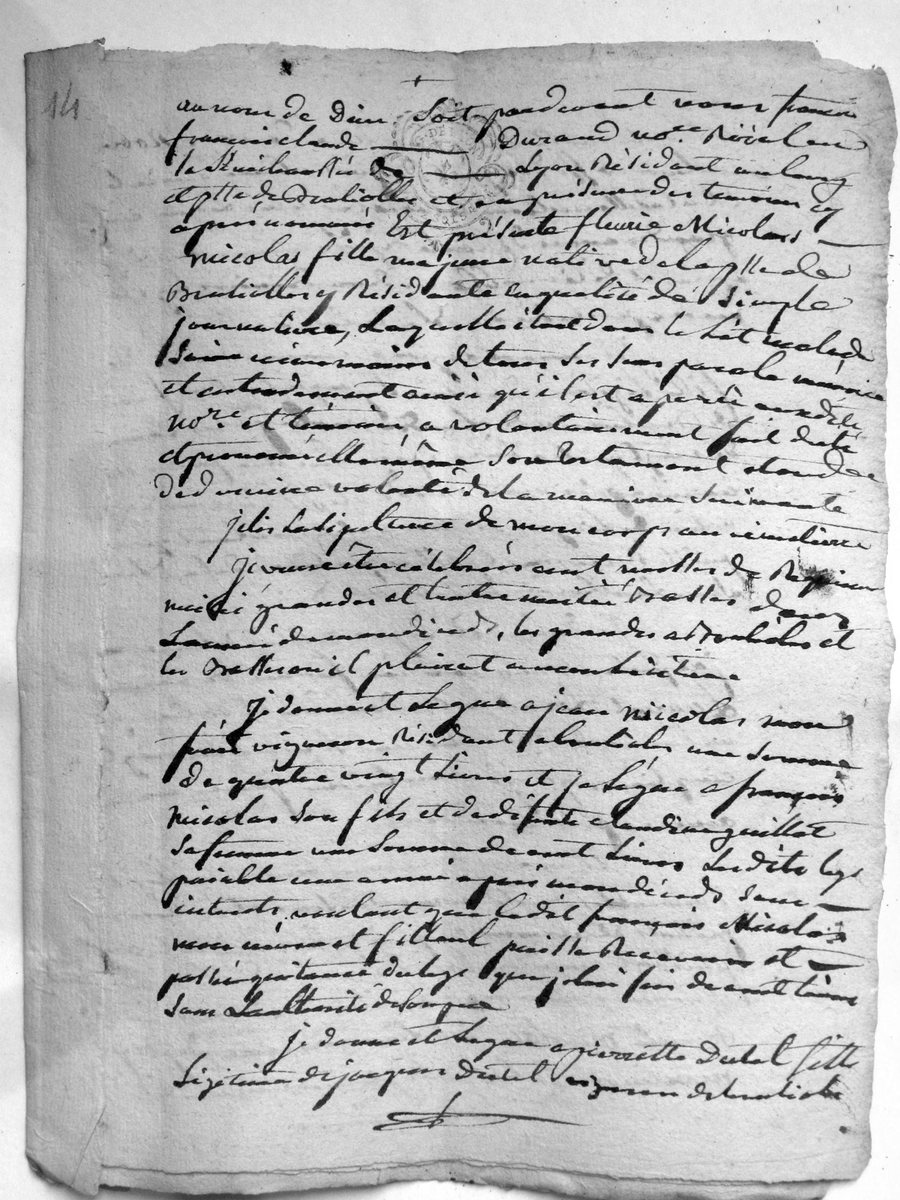 14
au nom de Dieu Soit pardevant nous françois
françois claude Durand no.re Roïal en
la Sénéchaussée de Lyon Résidant au bourg
et p.sse de Brulliolles et en présence des témoins cy
après nommés Est présente fleurie Nicolas
Nicolas fille majeure native de la p.sse de
Brulliolles y Résidante en qualité de Simple
journalière, Laquelle étant dans le Lit malade
Saine néanmoins de tous Ses Sens parole mémoire
et entendement ainsi qu'il est aparû audit
no.re et témoins a volontairement fait dicté
et prononcé elle même Son testament et ordce
de dernière volonté de la manière Suivante
j'élis La Sépulture de mon corps au cimetière
je veux être célébrées cent messes de Requiem
moitié grandes et l'autre moitié Basses dans
L'année de mon décès, les grandes a Brulioles et
les Basses ou il plaira a mon héritière
je donne et Legue a jean Nicolas mon
frère vigneron Résidant a brulioles une Somme
de quatre vingt Livres et je Lègue a françois
Nicolas Son fils et de défunte claudine guillot
Sa femme une Somme de cent Livres Lesdits legs
païable une année après mon décès Sans
intérêts voulant que ledit françois Nicolas
mon neveu et filleul puisse Recevoir et
passer quitance du legs que je lui fais de cent livres
Sans L'authorité de Son père
je donne et Legue a pierrette Dutel fille
Légitime de jacques Dutel vigneron de brulioles